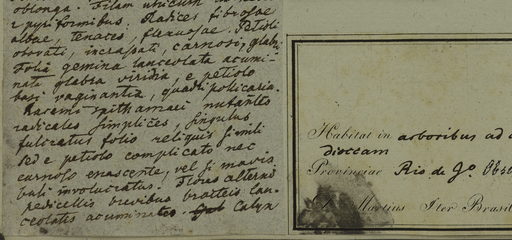 oblonga. Filam unicum
pyriformibus. Radices fibrosae
albae, tenaces, flexuosae. Petioli
obovati, incrassati, carnosi, glabri.
Folia gemina lanceolata acumi-
nata glabra viridia, e petiolo
basi vaginantia, quadripollicaria.
Racemi spithamaei nutantes
radicales simplices, singulus
fulcratus folio reliquis simili
sed e petiolo complicato nec
carnoso enascente, vel si mavis
involucratus. Flores alterni
pedicellis brevibus bracteis lan-
ceolatis acuminatis. Calyx
Habitat in arboribus ad
Provinciae Rio de Jo.
Martius Iter Brasil